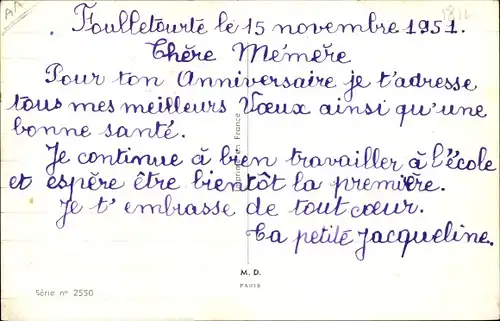 Foulletourte le 15 novembre 1951.
Chère Mémère
Pour ton Anniversaire je t'adresse
tous mes meilleurs Vœux ainsi qu'une
bonne santé.
Je continue à bien travailler à l'école
et espère être bientôt la première.
Je t'embrasse de tout cœur.
Ta petite Jacqueline.
en France
M. D.
PARIS
Série nº 2550
AA